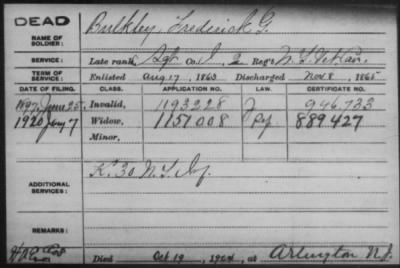 DEAD
NAME OF SOLDIER: Bulkley, Frederick G.
SERVICE: Late rank, Sgt Co. I, 2 Reg't N.Y. Vet Cav.
TERM OF SERVICE: Enlisted Aug 17, 1863 Discharged Nov 8, 1865
DATE OF FILING. CLASS. APPLICATION NO. LAW. CERTIFICATE NO.
1897, June 25 Invalid, 1193228 J 946.733
1920 Jany 7 Widow, 1151008 889427
Minor,
ADDITIONAL SERVICES: K. 30 N.Y. Inf.
REMARKS:
Died Oct 19, 1904, at Arlington N.J.